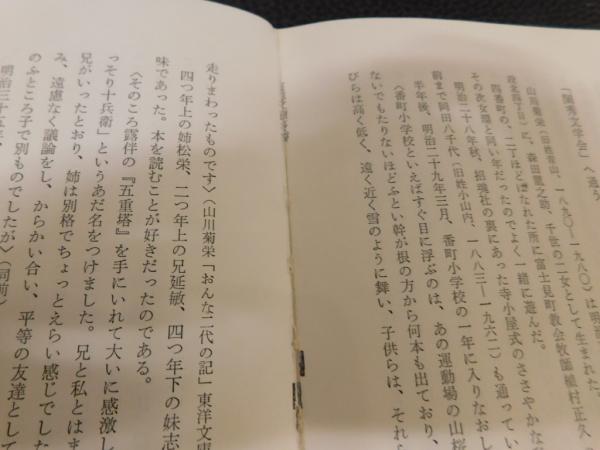 「閨秀文学会」へ通う
山川菊栄（旧姓青山、一八九〇―一九八〇）は明治
森田龍之助、千世の二女として生まれた。
四番町の、二丁ほどはなれた所に富士見町教会牧師植村正久
その次女環と同い年だったのでよく一緒に遊んだ。
明治二十八年秋、招魂社の裏にあった寺小屋式のささやかな
前まで岡田八千代（旧姓小山内、一八八三―一九六二）も通ってい
半年後、明治二十九年三月、番町小学校の一年に入りなおし
〈番町小学校といえばすぐ目に浮ぶのは、あの運動場の山桜
ないでもたりないほどふとい幹が根の方から何本も出ており、
びらは高く低く、遠く近く雪のように舞い、子供らは、それ
走りまわったものです〉（山川菊栄「おんな二代の記」東洋文庫
四つ年上の姉松栄、二つ年上の兄延敏、四つ年下の妹志
味であった。本を読むことが好きだったのである。
〈そのころ露伴の『五重塔』を手にいれて大いに感激し
っそり十兵衛」というあだ名をつけました。兄と私とはま
兄がいったとおり、姉は別格でちょっとえらい感じでした
み、遠慮なく議論をし、からかい合い、平等の友達として
のふところ子で別ものでしたが〉（同前）
明治三十五年、